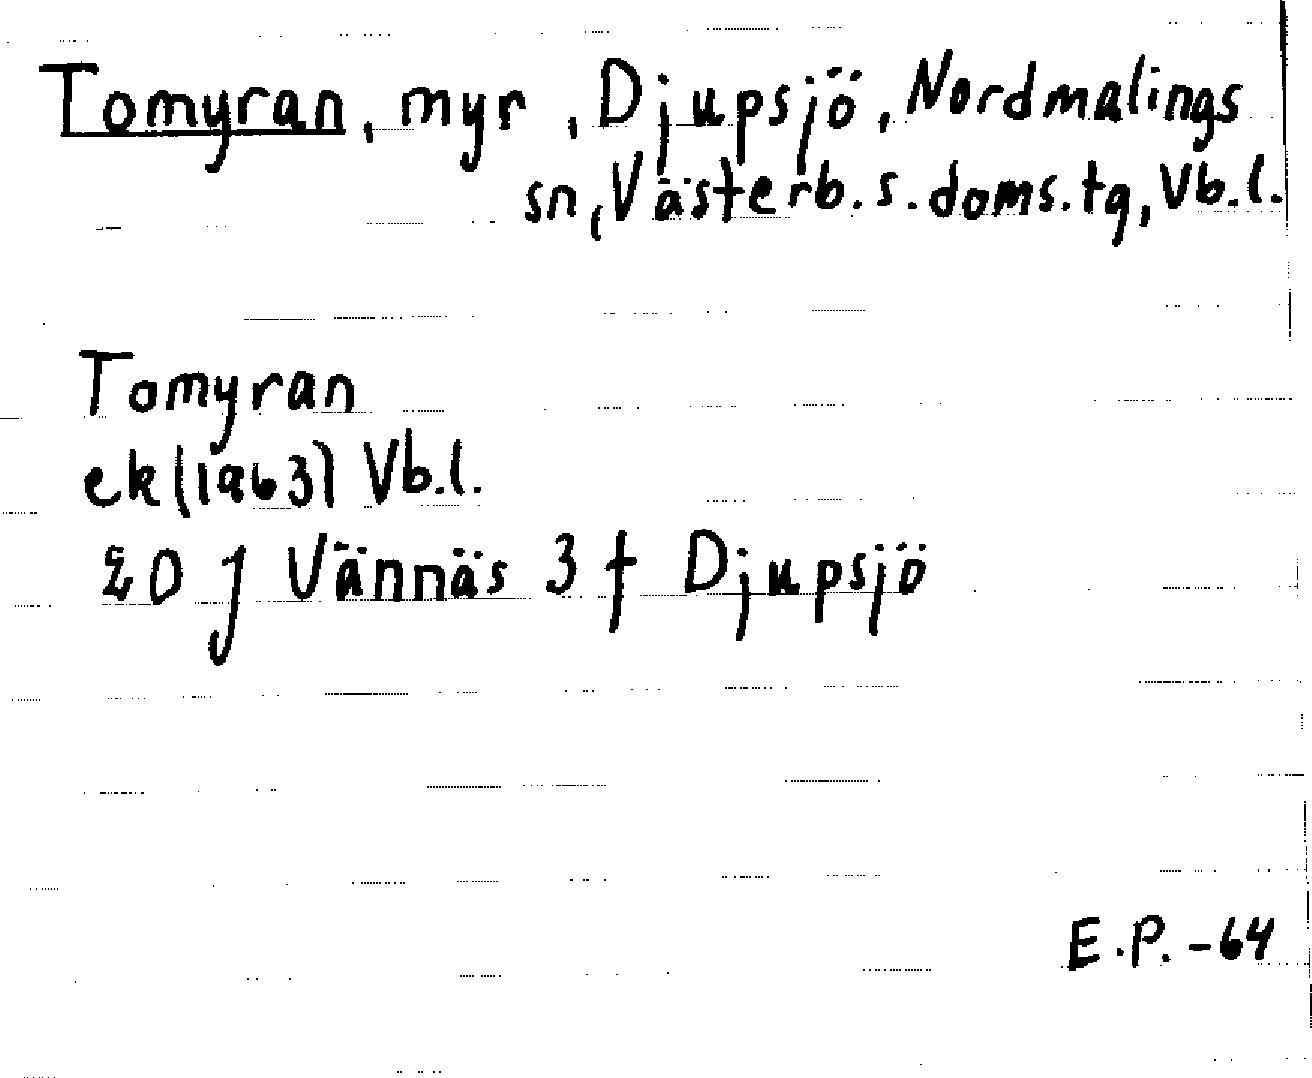 Tomyran, myr, Djupsjö, Nordmalings
sn, Västerb. s. doms. tg, Vb.l.
Tomyran
ek (1963) Vb.l.
20 J Vännäs 3 f Djupsjö
E.P. -64